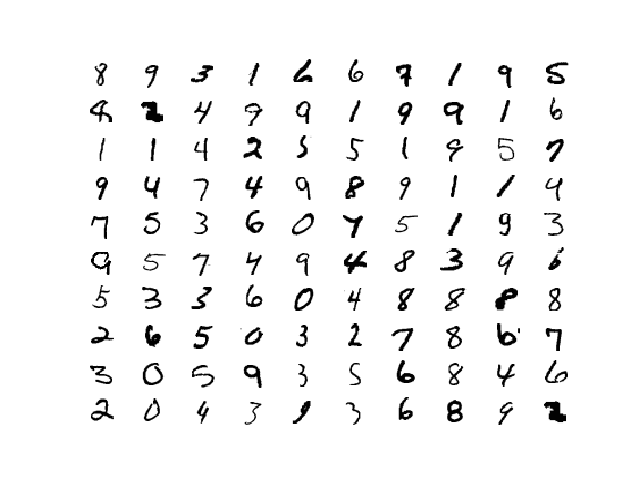 8 9 3 1 6 6 7 1 9 5
8 2 4 9 9 1 9 9 1 6
1 1 4 2 5 5 1 9 5 7
9 4 7 4 9 8 9 1 1 4
7 5 3 6 0 4 5 1 9 3
9 5 7 4 9 4 8 3 9 6
5 3 3 6 0 4 8 8 8 8
2 6 5 0 3 2 7 8 6 7
3 0 5 9 3 5 6 8 4 6
2 0 4 3 9 3 6 8 9 2